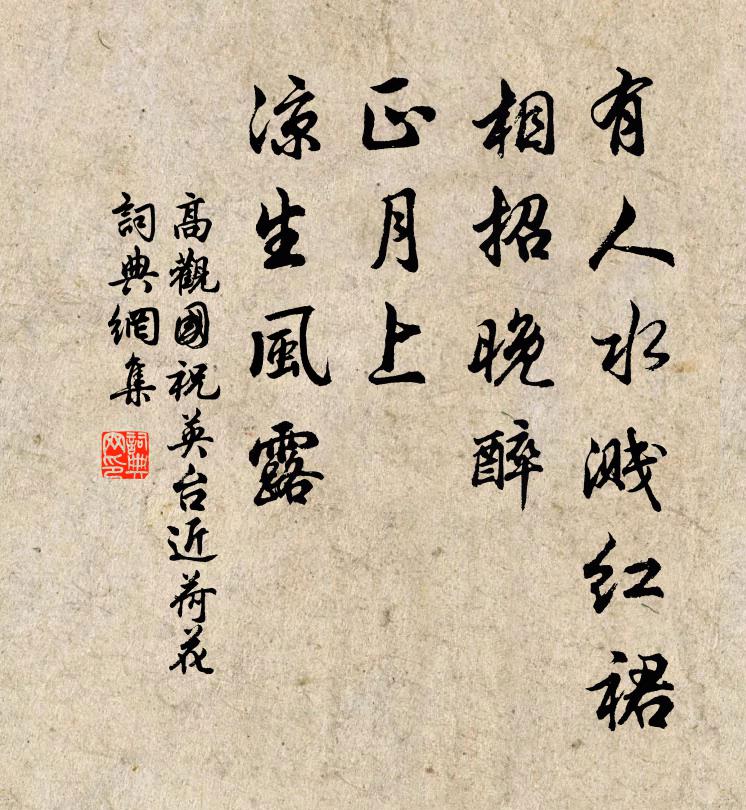 有人水溅红裙
相招晚醉
正月上
凉生風露
高觀國祝英台近荷花
詞典網集
詞典网印